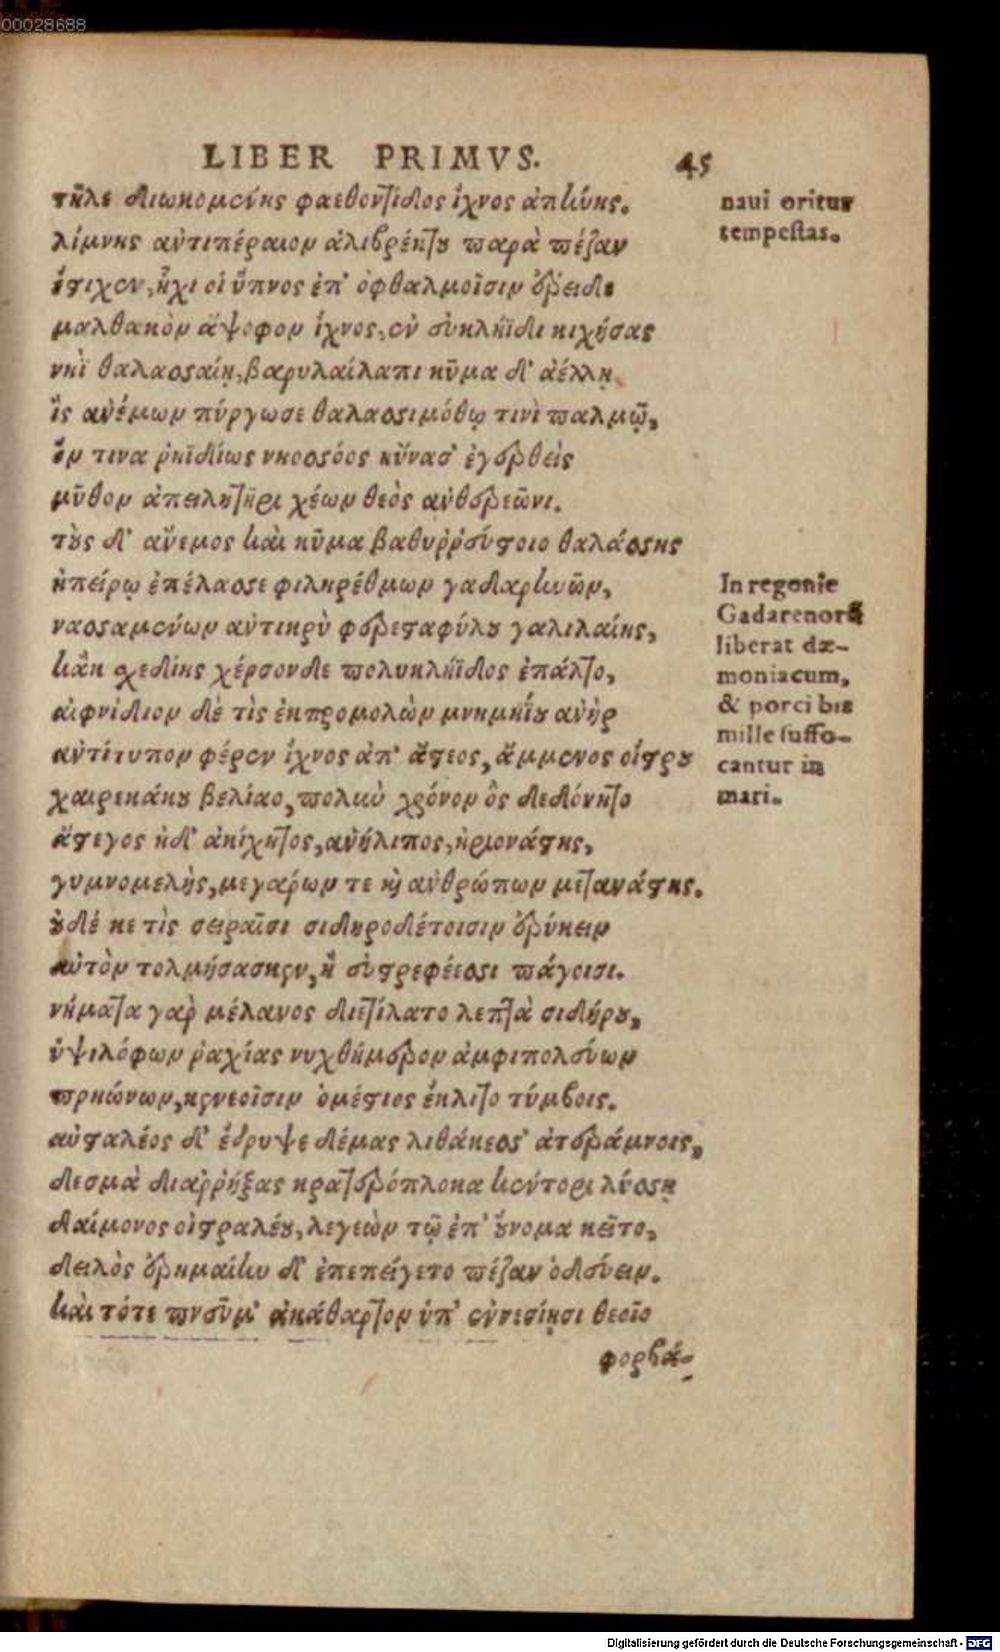 00028688
LIBER PRIMVS. 45
τῆλε διωκομένης φαεθοντίδος ἴχνος ἀπήνης.
λίμνης ἀντιπέραιον ἁλιβρέκτου παρὰ πέζαν
ἔστιχεν, ἧχι οἱ ὕπνος ἐπ' ὀφθαλμοῖσιν ἔρειδε
μαλθακὸν ἄψοφον ἴχνος, ἐν εὐκληῗδι κιχήσας
νηῒ θαλασσαίῃ, βαρυλαίλαπι κῦμα δ' ἀέλλῃ
ἲς ἀνέμων πύργωσε θαλασσιμόθῳ τινὶ παλμῷ,
ὅν τινα ῥηϊδίως νηοσσόος εὔνασ' ἐγερθεὶς
μῦθον ἀπειλητῆρι χέων θεὸς ἀνθερεῶνι.
τοὺς δ' ἄνεμος καὶ κῦμα βαθυῤῥεύστοιο θαλάσσης
ἠπείρῳ ἐπέλασσε φιληρέθμων γαδαρηνῶν,
νασσαμένων ἀντικρὺ φερεσταφύλου γαλιλαίης,
κἂκ σχεδίης χέρσονδε πολυκληῗδος ἐπάλτο,
αἰφνίδιον δὲ τὶς ἐκπρομολὼν μνημηΐου ἀνὴρ
ἀντίτυπον φέρεν ἴχνος ἀπ' ἄστεος, ἄμμενος οἴστρου
χαιρεκάκου βελίαο, πολὺν χρόνον ὃς δεδόνητο
ἄστεγος ἠδ' ἀκίχητος, ἀνήλιπος, ἠριονάστης,
γυμνομελὴς, μεγάρων τε καὶ ἀνθρώπων μετανάστης.
οὐδέ κε τὶς σειραῖσι σιδηροδέτοισιν ἐρύκειν
αὐτὸν τολμήσασκεν, ἢ εὐστρεφέεσσι πάγοισι.
νήματα γαρ μέλανος διετίλατο λεπτὰ σιδήρου,
ὑψιλόφων ῥαχίας νυχθήμερον ἀμφιπολεύων
πρηώνων, κενεοῖσιν ὁμέστιος ἔκλιτο τύμβοις.
αὐσταλέος δ' ἔδρυψε δέμας λιθάκεσσ' ἀτεράμνοις,
δεσμὰ διαῤῥήξας κρατερόπλοκα κέντορι λύσσῃ
δαίμονος οἰστραλέου, λεγεὼν τῷ ἐπ' οὔνομα κεῖτο,
δειλὸς ἐρημαίην δ' ἐπεπείγετο πέζαν ὁδεύειν.
καὶ τότε πνεῦμ' ἀκάθαρτον ὑπ' ἐννεσίῃσι θεοῖο
φορβά-
naui oritur
tempestas.
In regonie
Gadarenorū
liberat dæ-
moniacum,
& porci bis
mille suffo-
cantur in
mari.
Digitalisierung gefördert durch die Deutsche Forschungsgemeinschaft - DFG